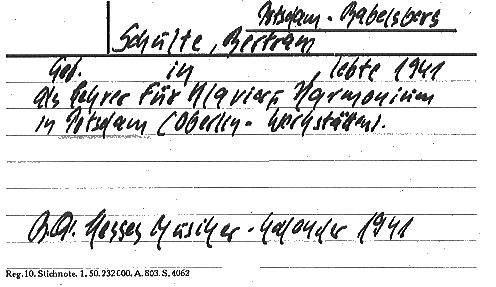 Potsdam-Babelsberg
Schulte, Bertram
Geb. in , lebte 1941
als Lehrer für Klavier, Harmonium
in Potsdam (Oberlin-Werkstätten).
Hesses Musiker-Kalender 1941
Reg. 10. Stichnote. 1. 50. 232000. A. 803. S. 4062